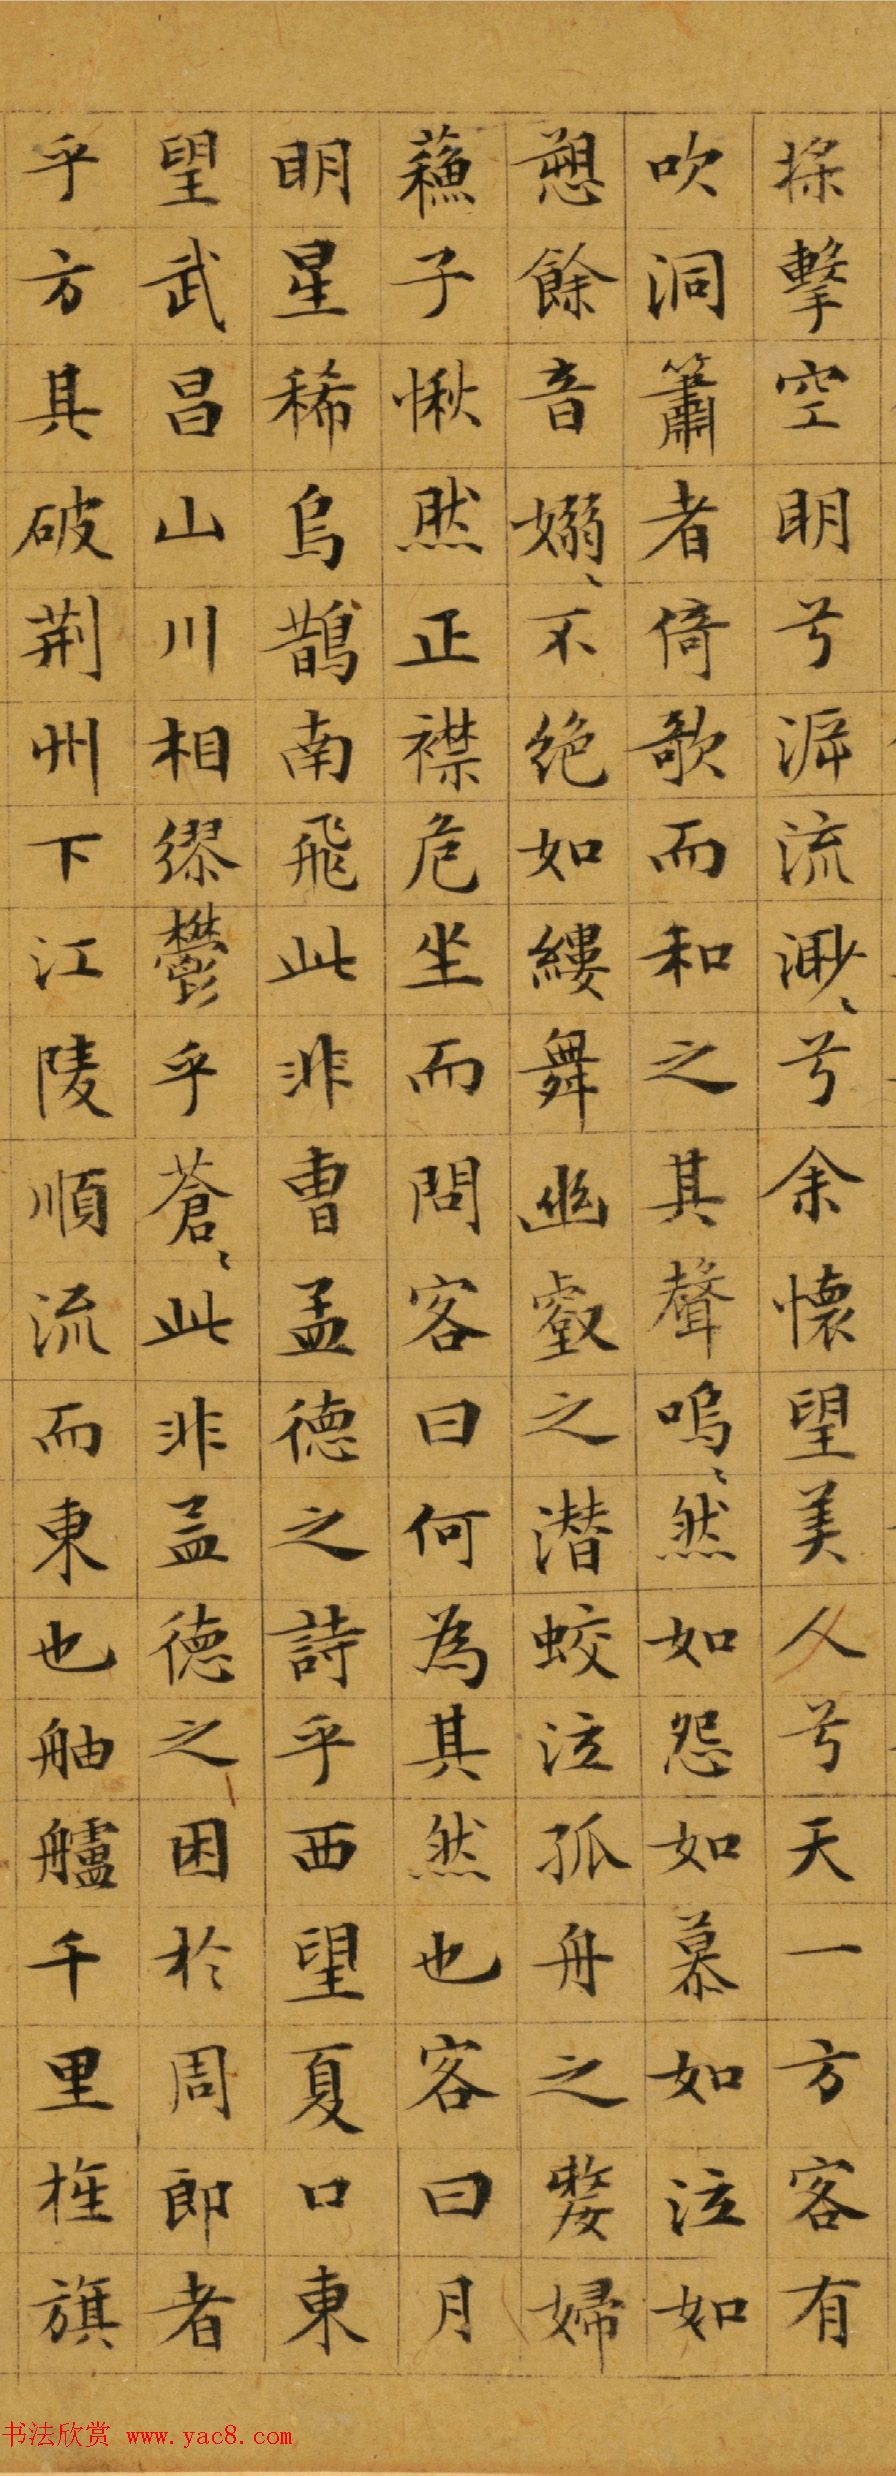 槳擊空明兮泝流渺〻兮余懷望美人兮天一方客有
吹洞簫者倚歌而和之其聲嗚〻然如怨如慕如泣如
愬餘音嫋〻不絶如縷舞幽壑之潜蛟泣孤舟之嫠婦
蘓子愀然正襟危坐而問客曰何為其然也客曰月
明星稀烏鵲南飛此非曹孟德之詩乎西望夏口東
望武昌山川相繆鬱乎蒼〻此非孟德之困於周郎者
乎方其破荆州下江陵順流而東也舳艫千里旌旗
书法欣赏 www.yac8.com